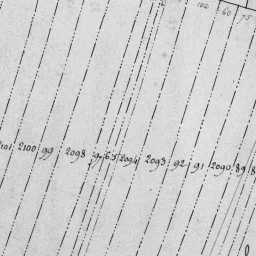 102 60 75
2101 2100 99 2098 9 65 2094 2093 92 91 2090 89 8